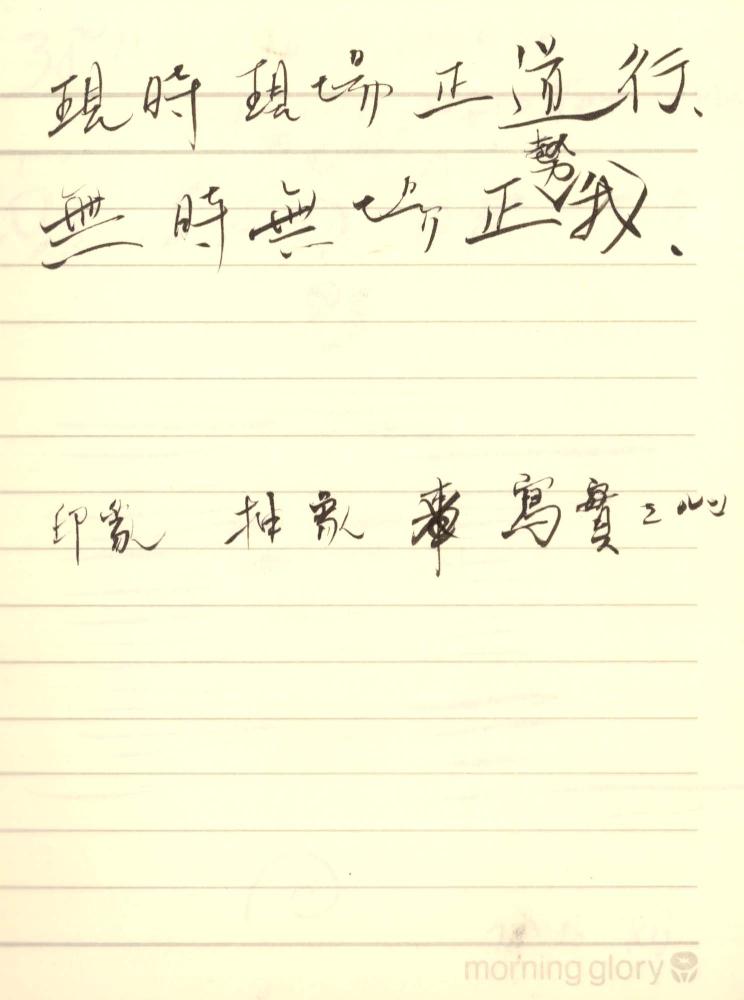 現時現場正道行、
無時無場正勢我、
印象 抽象 寫實之心
morning glory